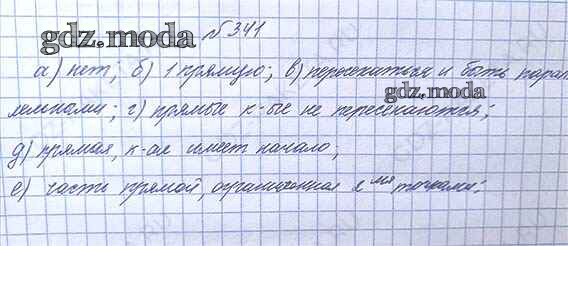 gdz.moda № 341
а) нет; б) 1 прямую; в) пересекаться и быть парал
gdz.moda
лельными; г) прямые к-ые не пересекаются;
д) прямая, к-ая имеет начало;
е) часть прямой, ограниченная 2мя точками.
gdz.moda